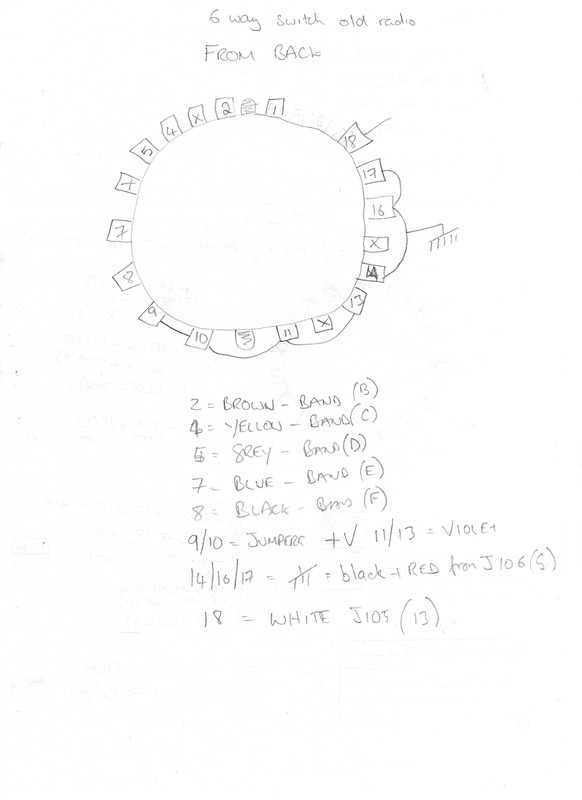 6 way switch old radio.
FROM BACK
1
18
17
16
X
13
X
11
10
9
8
7
5
4
X
2
2 = BROWN - BAND (B)
4 = YELLOW - BAND (C)
5 = GREY - BAND (D)
7 - BLUE - BAND (E)
8 = BLACK - BAND (F)
9/10 = JUMPERE +V 11/13 = VIOLET
14/16/17 = = black + RED from J106(S)
18 = WHITE J105 (13)